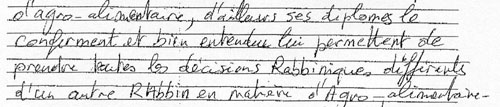 d'agro-alimentaire, d'ailleurs ses diplomes le
conferment et bien entendu lui permettent de
prendre toutes les décisions Rabbiniques différents
d'un autre Rabbin en matière d'Agro-alimentaire-